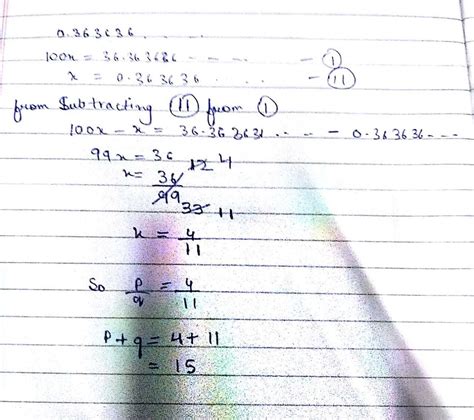 0.363636 . . . .
100x = 36.363636 - - - - - (I)
x = 0.363636 . . . . - (II)
from Subtracting (II) from (I)
100x - x = 36.363631 . . - - 0.363636 - - -
99x = 36
x = 36 12 4
99
33 11
x = 4
11
So P = 4
q 11
P + q = 4 + 11
= 15